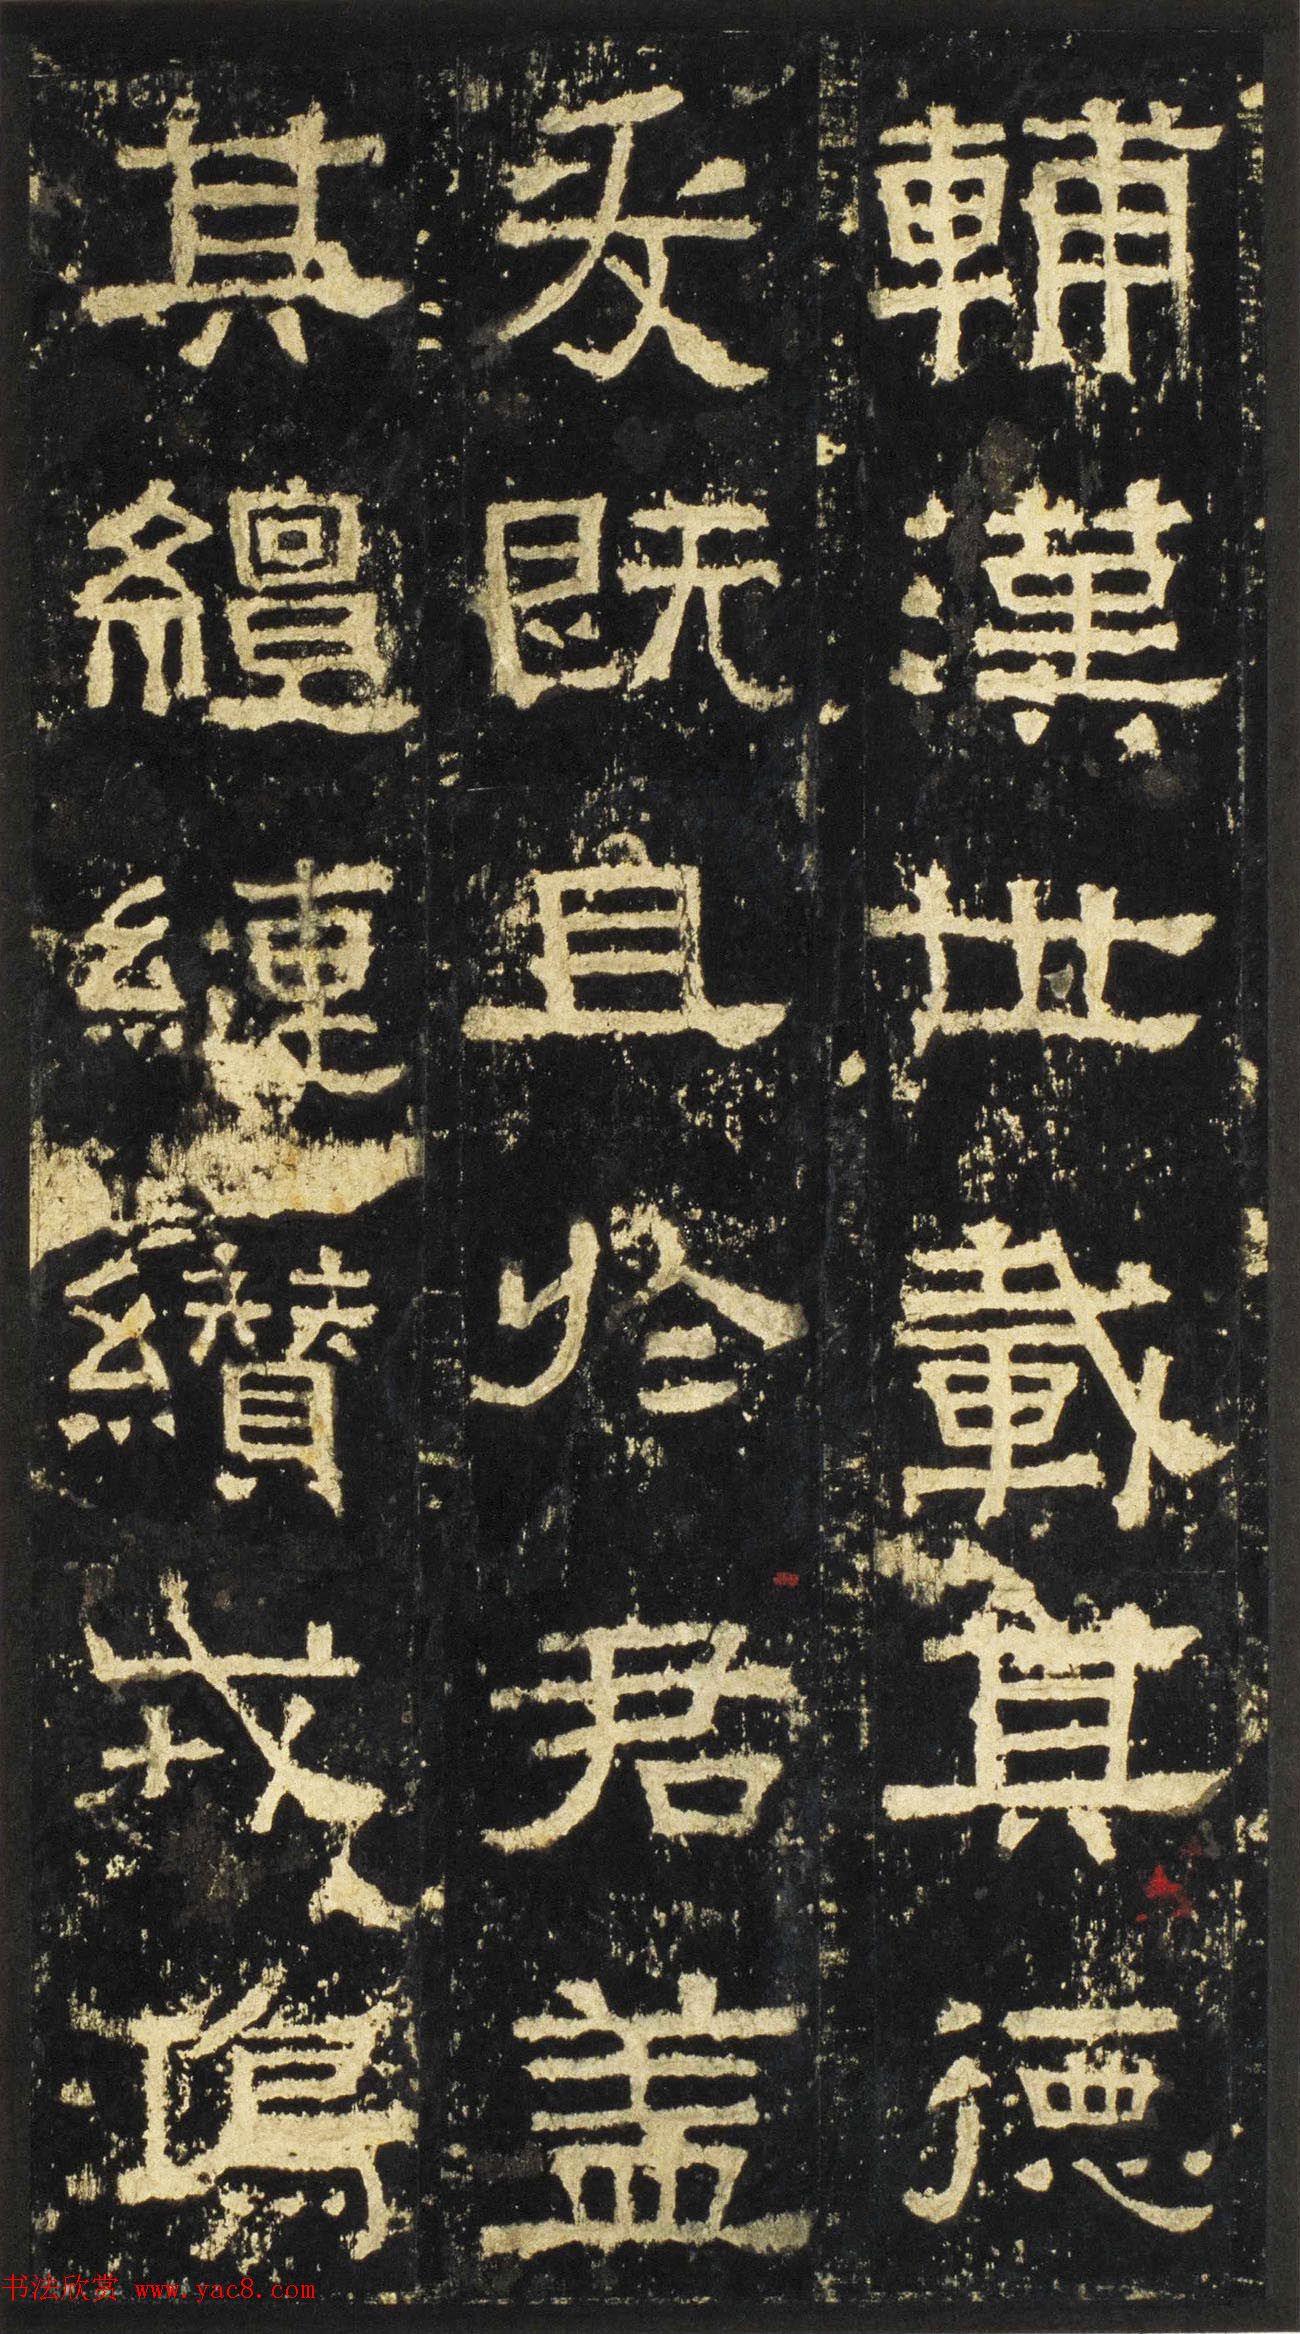 輔漢世載其德
爰既且於君蓋
其繵縺纘戎鴻
书法欣赏 www.yac8.com